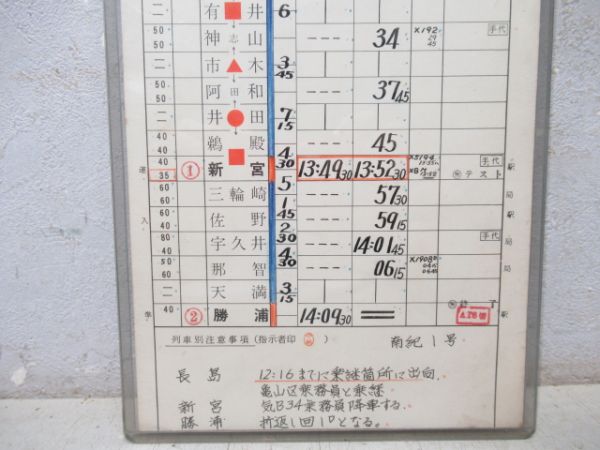 有井 6
50 神志山 --- 34 X192 29 45 手代
市木 3 45
50 50 阿田和 --- 37 45
井田 7 15
鵜殿 4 --- 45
40 40 35 ① 新宮 30 13:49 30 13:52 30 X5194 テスト 手代 駅
三輪崎 5 --- 57 30 局
60 佐野 1 45 --- 59 15 駅
80 40 80 宇久井 2 30 --- 14:01 45 手代 局
60 60 那智 4 30 --- 06 15 X1908D 局
天満 3 15
40 ② 勝浦 14:09 30 = 終了 駅
列車別注意事項(指示者印 ) 南紀1号
長島 12:16までに乗継箇所に出向
亀山区乗務員と乗継
新宮 気B34乗務員降車する。
勝浦 折返し回1Dとなる。